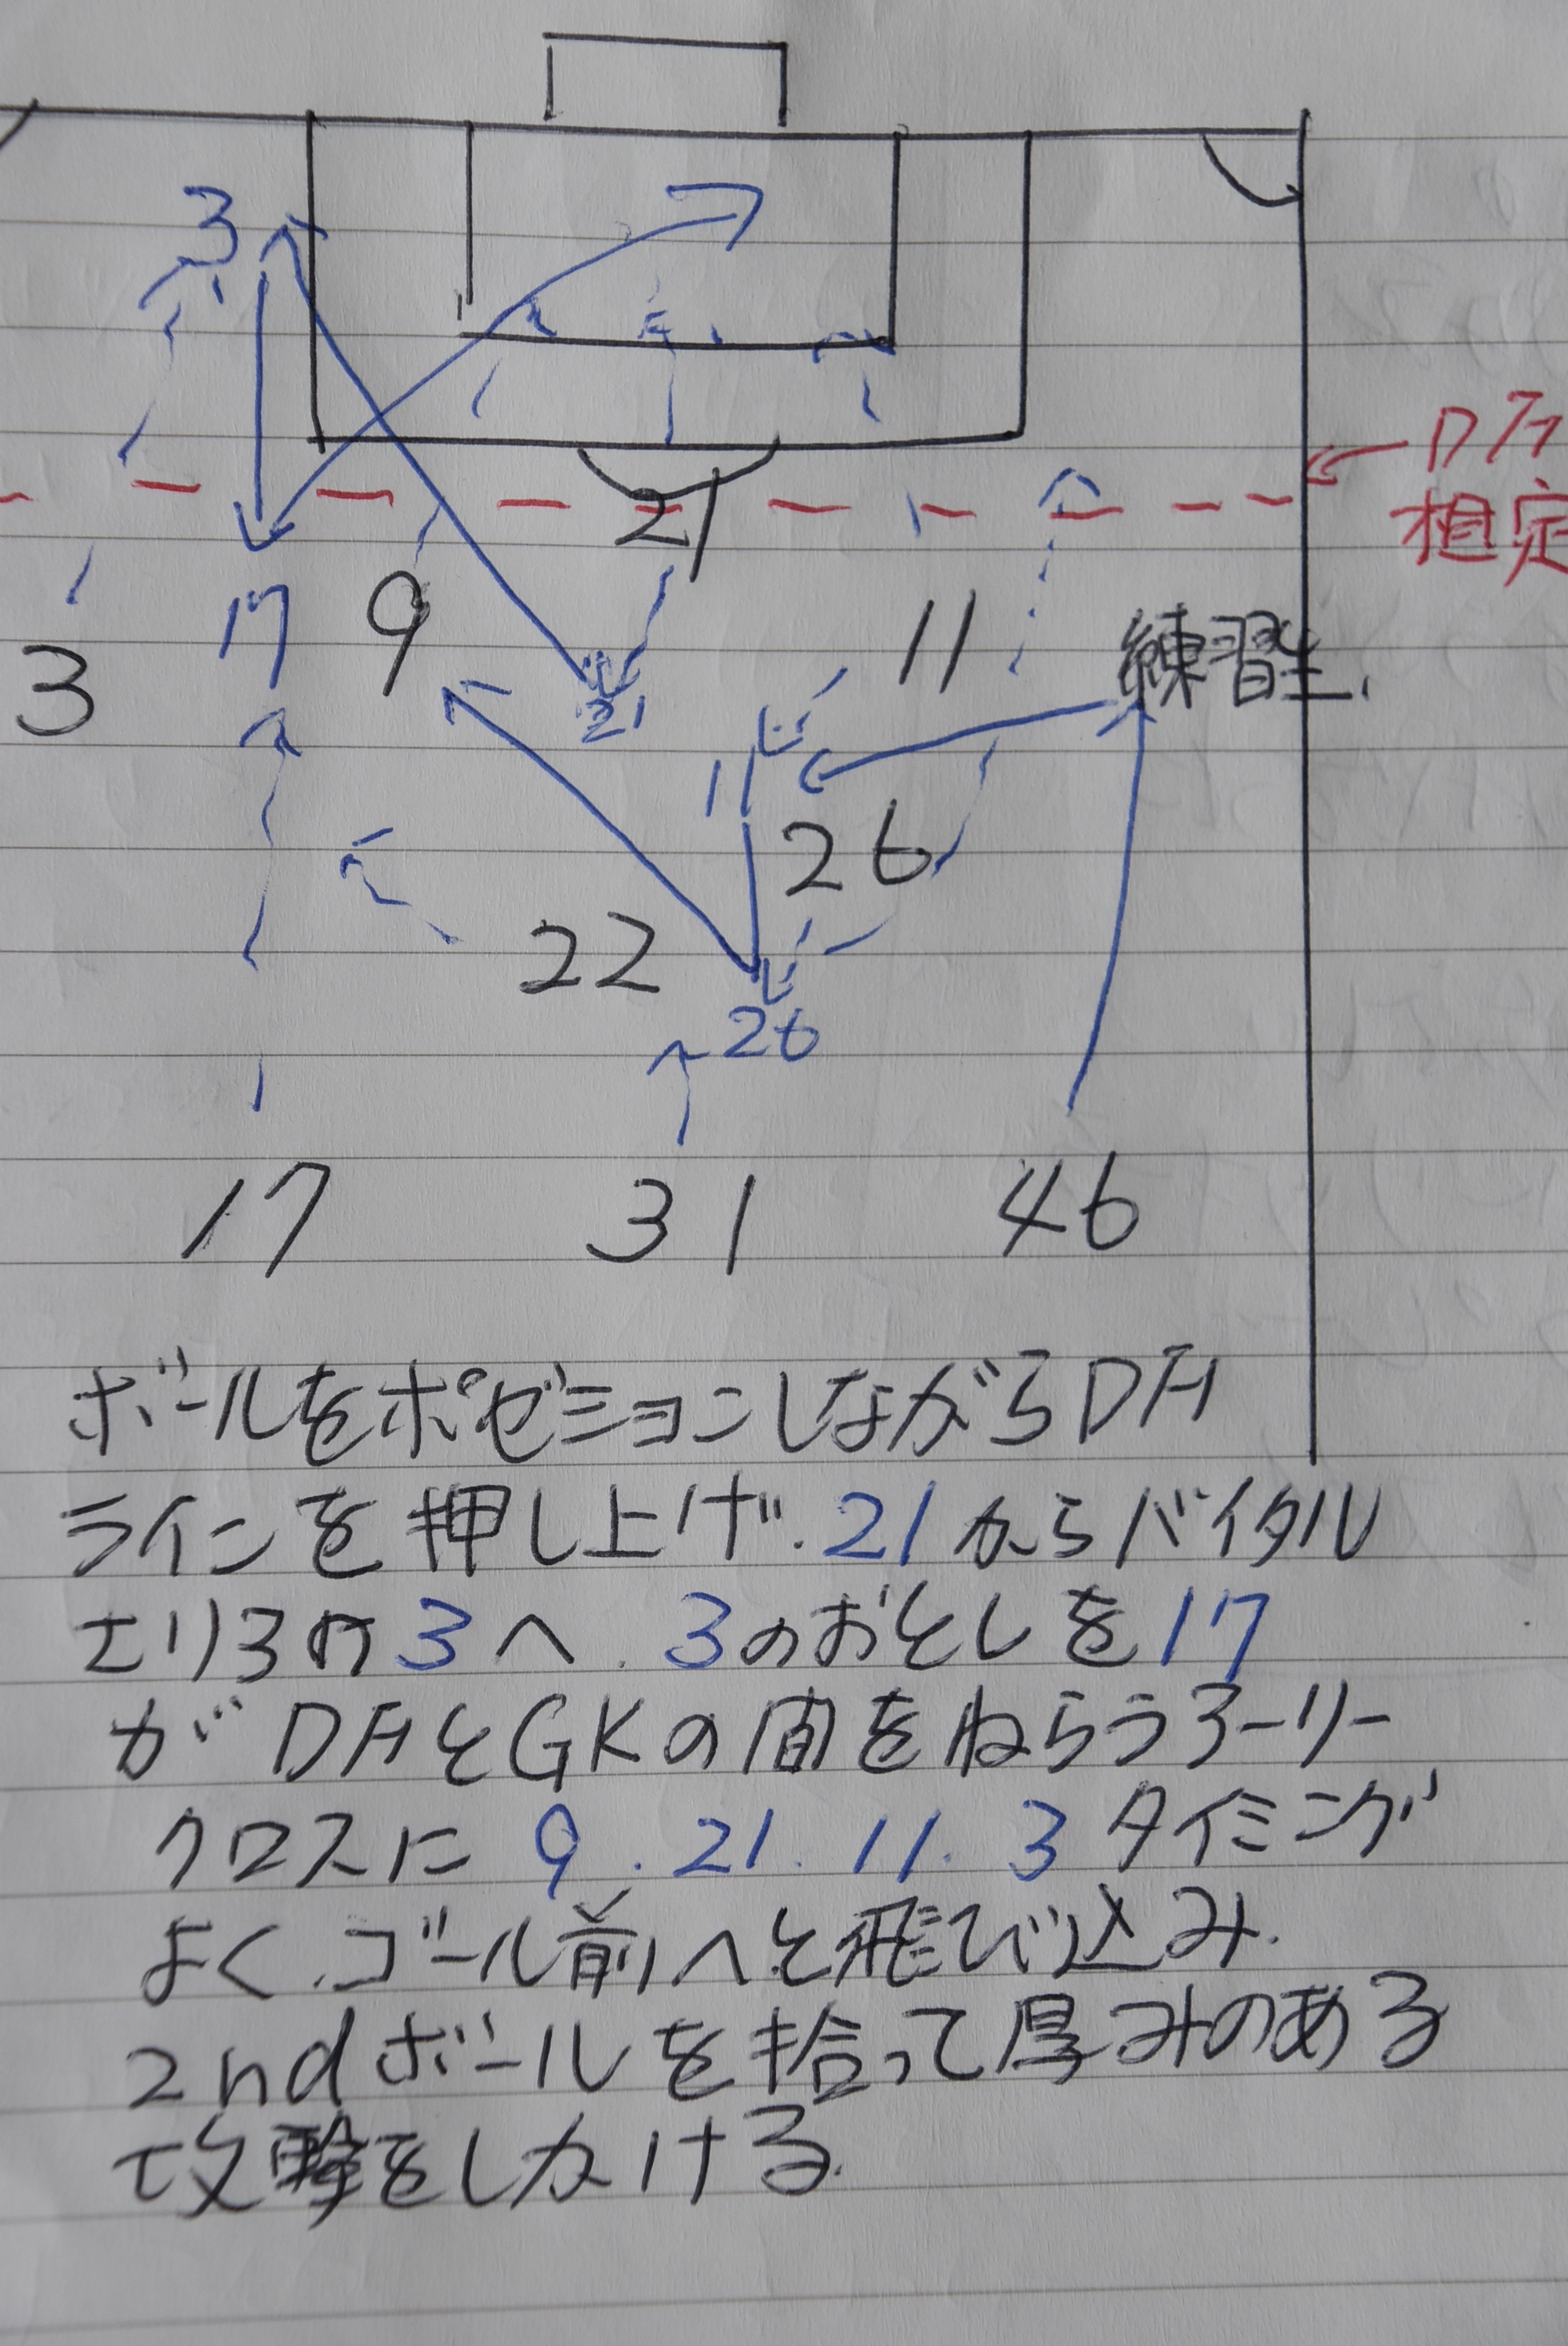 3
21
DFライン
想定
17
9
11
練習生.
3
21
11
26
22
26
17
31
46
ボールをポゼションしながらDF
ラインを押し上げ.21からバイタル
エリアの3へ.3のおとしを17
がDFとGKの間をねらうアーリー
クロスに9.21.11.3タイミング
よく.ゴール前へと飛び込み.
2ndボールを拾って厚みのある
攻撃をしかける.